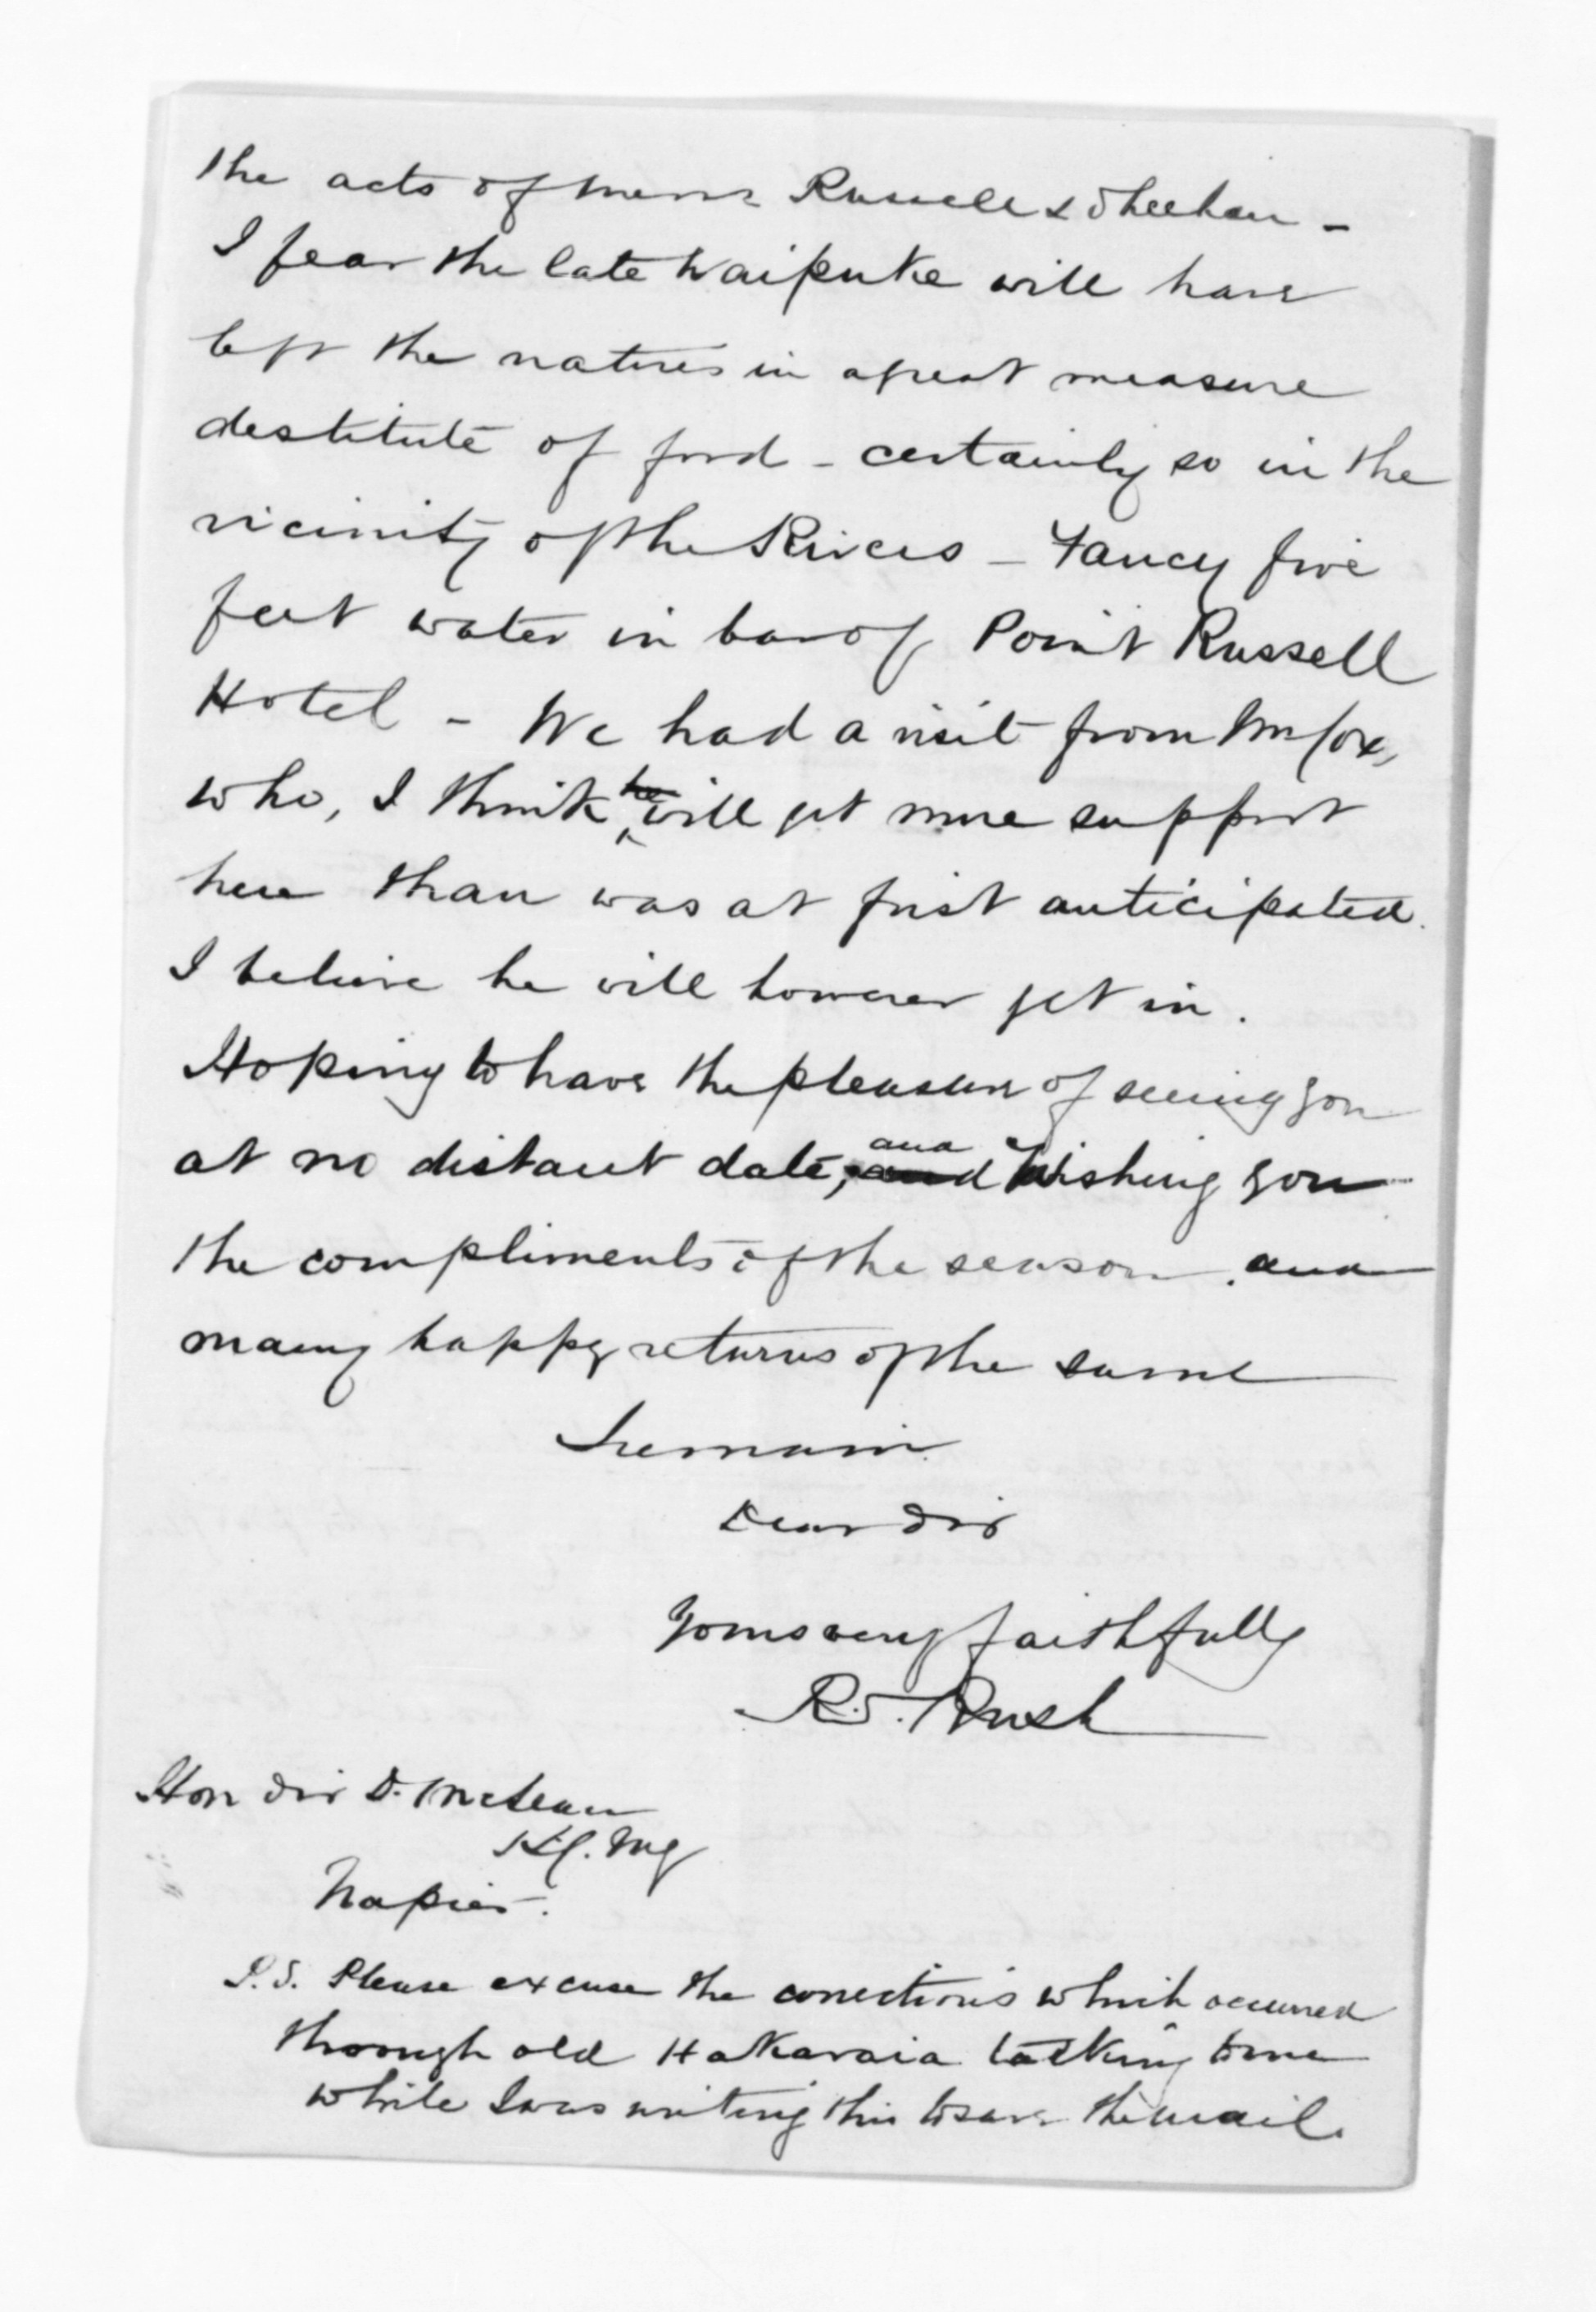 the acts of Messrs Russell & Sheehan -
I fear the late Waipuke will have
left the natives in a great measure
destitute of food - certainly so in the
vicinity of the Rivers - Fancy five
feet water in bar of Point Russell
Hotel - We had a visit from Mr Cox,
who, I think he will get more support
here than was at first anticipated.
I believe he will however get in.
Hoping to have the pleasure of seeing you
at no distant date, and and Wishing you
the compliments of the season and
many happy returns of the same
I remain
Dear Sir
Yours very faithfully
R.S. Bush
Hon Sir D. McLean
K.C.M.G
Napier.
P.S. Please excuse the corrections which occurred
through old Hakaraia talking to me
while I was writing this to save the mail.